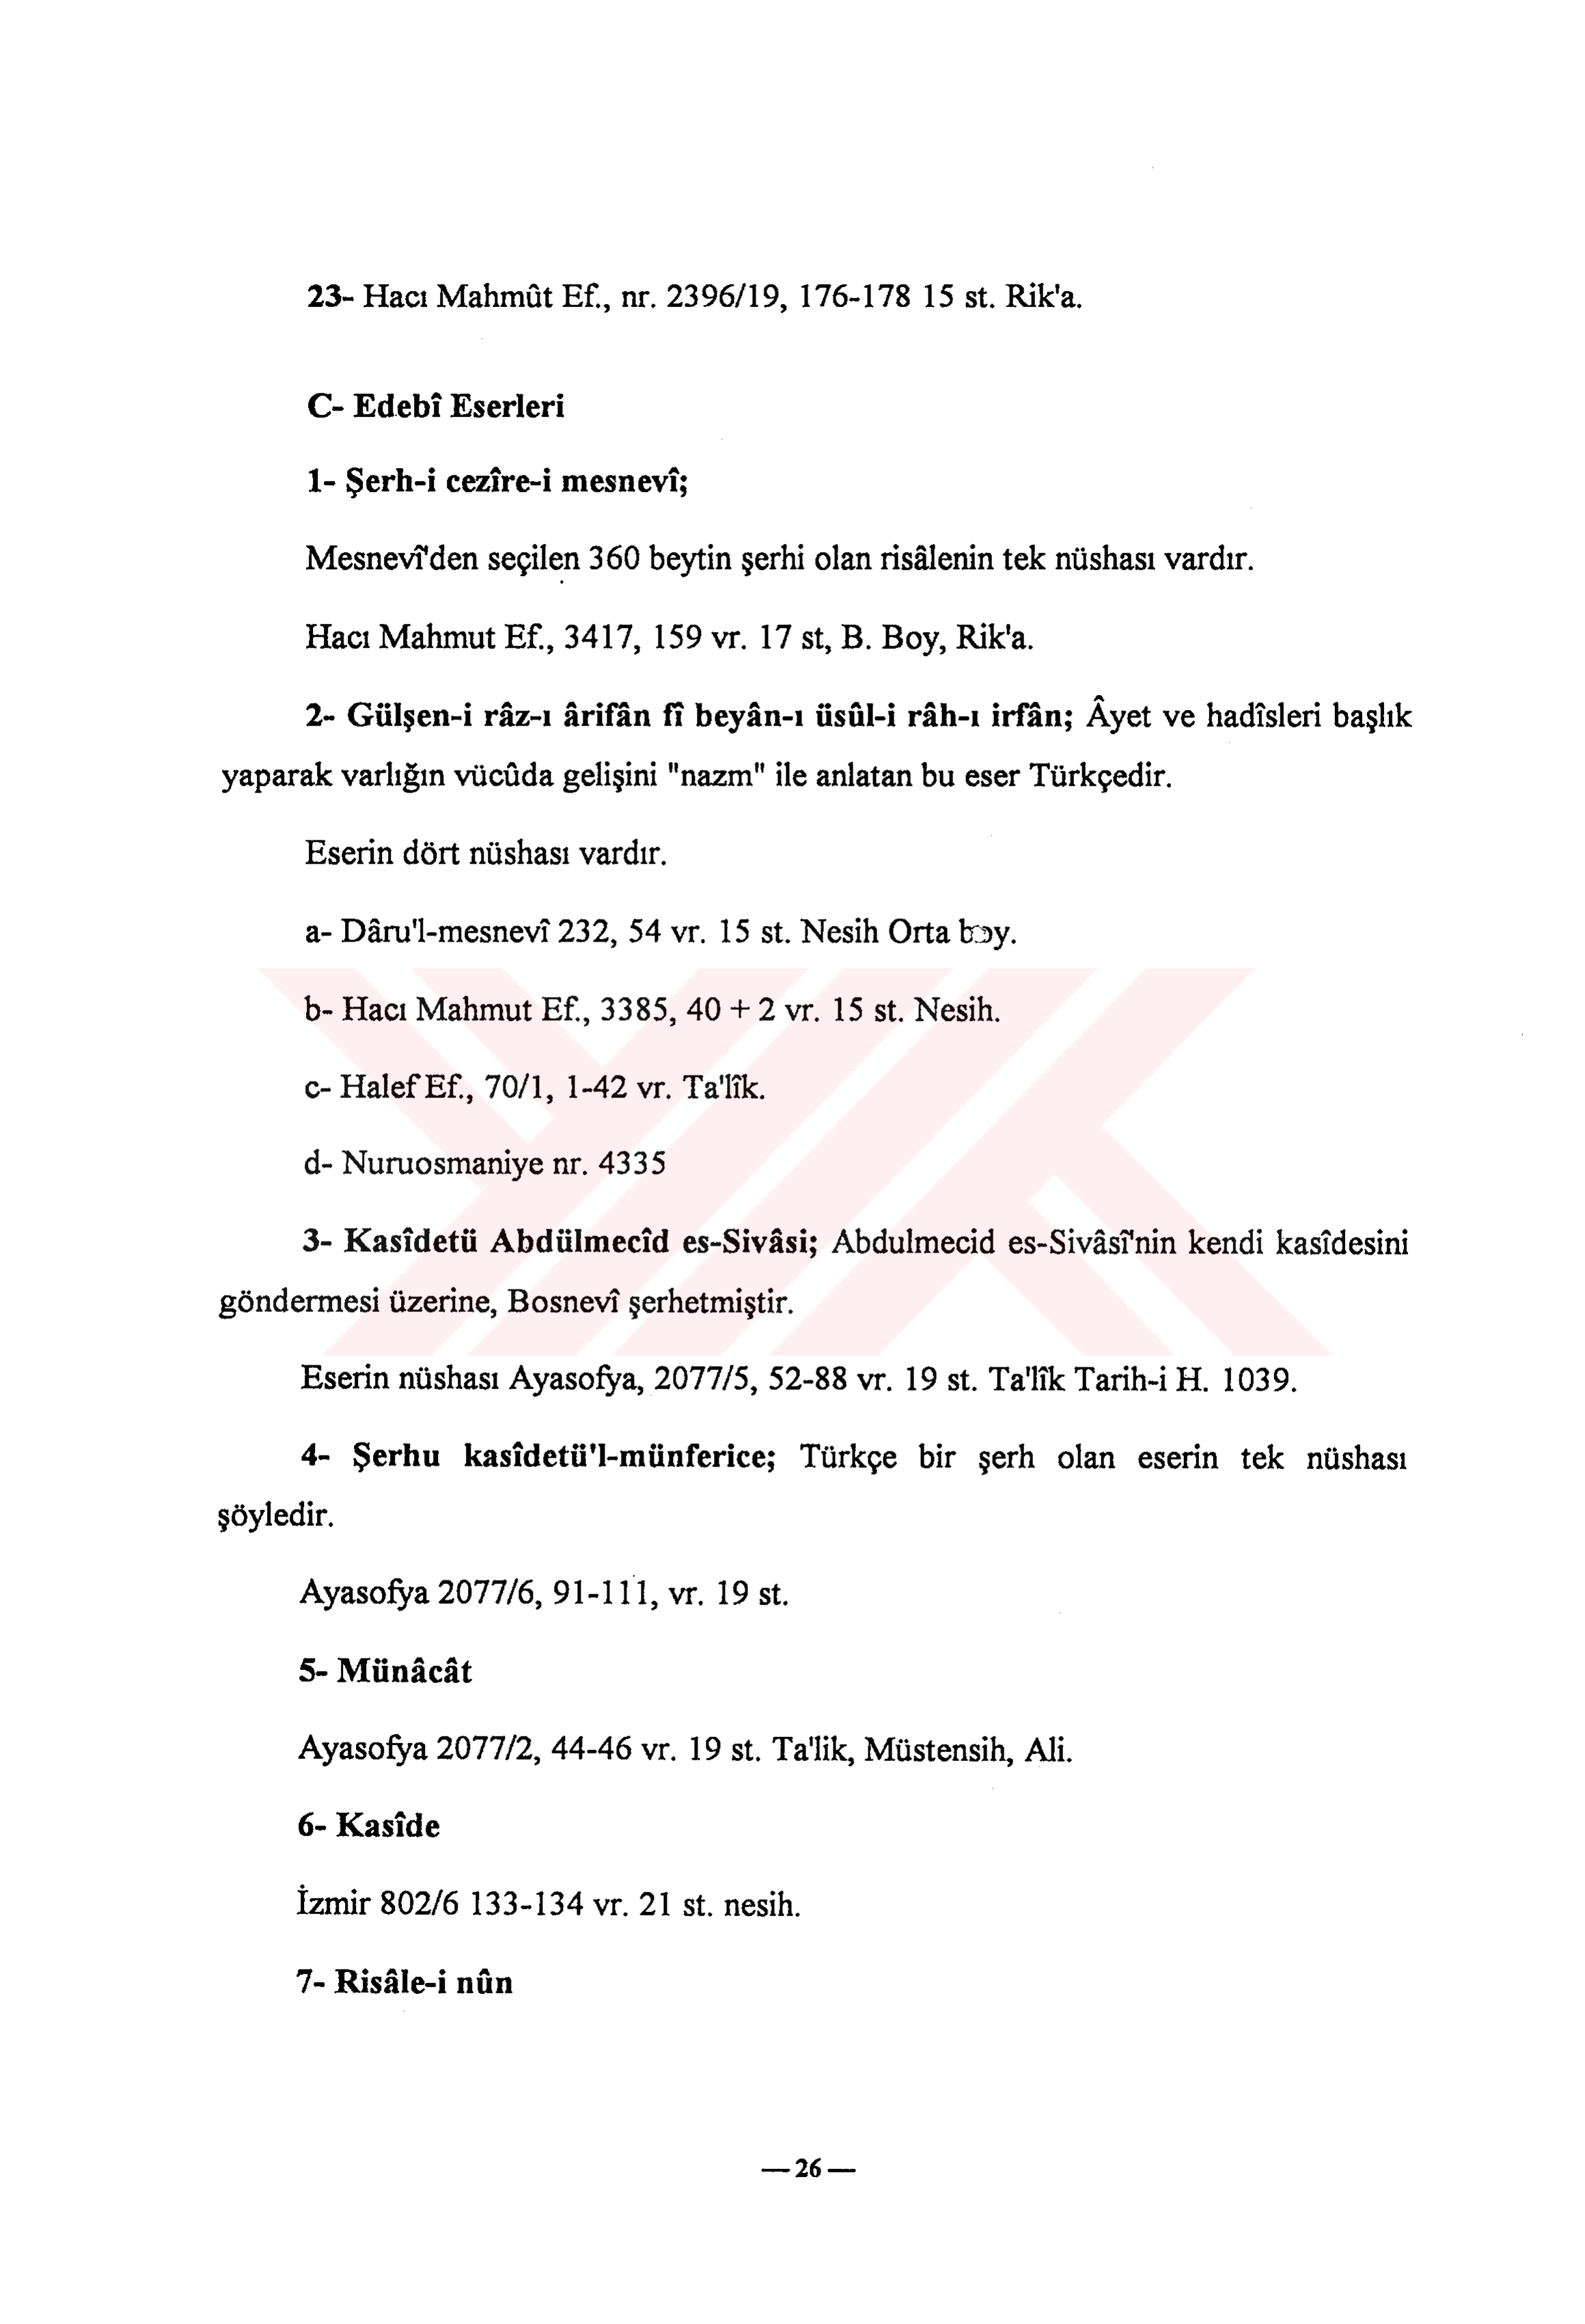 23- Hacı Mahmût Ef., nr. 2396/19, 176-178 15 st. Rik'a.
C- Edebî Eserleri
1- Şerh-i cezîre-i mesnevî;
Mesnevî'den seçilen 360 beytin şerhi olan risâlenin tek nüshası vardır.
Hacı Mahmut Ef., 3417, 159 vr. 17 st, B. Boy, Rik'a.
2- Gülşen-i râz-ı ârifân fî beyân-ı üsûl-i râh-ı irfân; Âyet ve hadîsleri başlık
yaparak varlığın vücûda gelişini "nazm" ile anlatan bu eser Türkçedir.
Eserin dört nüshası vardır.
a- Dâru'l-mesnevî 232, 54 vr. 15 st. Nesih Orta boy.
b- Hacı Mahmut Ef., 3385, 40 + 2 vr. 15 st. Nesih.
c- Halef Ef., 70/1, 1-42 vr. Ta'lîk.
d- Nuruosmaniye nr. 4335
3- Kasîdetü Abdülmecîd es-Sivâsi; Abdulmecid es-Sivâsî'nin kendi kasîdesini
göndermesi üzerine, Bosnevî şerhetmiştir.
Eserin nüshası Ayasofya, 2077/5, 52-88 vr. 19 st. Ta'lîk Tarih-i H. 1039.
4- Şerhu kasîdetü'l-münferice; Türkçe bir şerh olan eserin tek nüshası
şöyledir.
Ayasofya 2077/6, 91-111, vr. 19 st.
5- Münâcât
Ayasofya 2077/2, 44-46 vr. 19 st. Ta'lik, Müstensih, Ali.
6- Kasîde
İzmir 802/6 133-134 vr. 21 st. nesih.
7- Risâle-i nûn
— 26 —